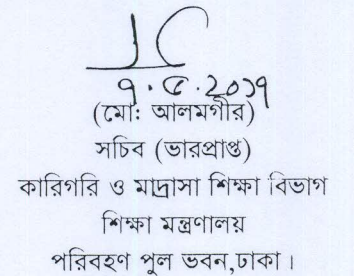 ৭.৫.2০১৭
(মো: আলমগীর)
সচিব (ভারপ্রাপ্ত)
কারিগরি ও মাদ্রাসা শিক্ষা বিভাগ
শিক্ষা মন্ত্রণালয়
পরিবহণ পুল ভবন,ঢাকা।